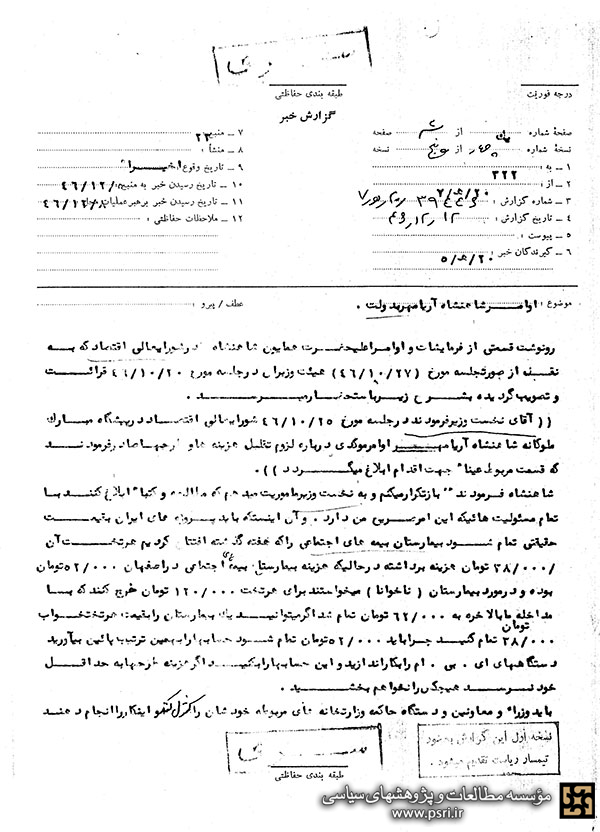 درجه فوریت
طبقه بندی حفاظتی
گزارش خبر
صفحه شماره یک از صفحه
نسخه شماره چهار از پنج نسخه
۱ – به : ۳۲۲
۲ – از : ۲۰ ه ۲
۳ – شماره گزارش :
۴ – تاریخ گزارش :
۵ – پیوست :
۶ – گیرندگان خبر : ۲۰ ه ۵
۷ – منبع : ۲۳
۸ – منشأ :
۹ – تاریخ وقوع : اخیرا"
۱۰ – تاریخ رسیدن خبر به منبع : ۴۶/۱۲/
۱۱ – تاریخ رسیدن خبر برهبر عملیات
۱۲ – ملاحظات حفاظتی :
موضوع : اوامر شاهنشاه آریامهر بدولت .
عطف / پیرو :
رونوشت قسمتی از فرمایشات و اوامر اعلیحضرت همایون شاهنشاه در شورایعالی اقتصاد که به
نقل از صورتجلسه مورخ (۴۶/۱۰/۲۷) هیئت وزیران در جلسه مورخ ۴۶/۱۰/۳۰ قرائت
و تصویب گردیده بشرح زیر باستحضار میرسد .
(( آقای نخست وزیر فرمودند در جلسه مورخ ۴۶/۱۰/۲۵ شورایعالی اقتصاد در پیشگاه مبارک
ملوکانه شاهنشاه آریامهر اوامر موکدی درباره لزوم تقلیل هزینه ها و طرحها صادر فرمودند
که قسمت مربوط عینا" جهت اقدام ابلاغ میگردد )) .
شاهنشاه فرمودند " باز تکرار میکنم و به نخست وزیر ماموریت میدهم که مطالعه و کتبا" ابلاغ کنند با
تمام مسئولیت هائیکه این امر سرپیچی من دارد . و آن اینستکه باید پروژه های ایران بقیمت
حقیقتی تمام شود بیمارستان بیمه های اجتماعی را که هفته گذشته افتتاح کردیم هر تختخواب آن
۳۸/۰۰۰ تومان هزینه برداشته در حالیکه هزینه بیمارستان بیمه های اجتماعی در اصفهان ۵۲/۰۰۰ تومان
بوده و در مورد بیمارستان ( ناخوانا ) میخواستند برای هر تخت ۱۲۰/۰۰۰ تومان خرج کنند که با
مداخله ما بالاخره به ۶۲/۰۰۰ تومان تمام شد اگر میتوانید یک بیمارستان را بقیمت هر تختخواب
۳۸/۰۰۰ تومان تمام کنید چرا باید ۵۲/۰۰۰ تومان تمام شود حسابها را بهمین ترتیب پائین بیاورید
دستگاههای ای . بی . ام را بکار اندازید و این حسابها را بکنید اگر هزینه طرحها به حداقل
خود نرسد هیچکس را نخواهم بخشید .
باید وزراء و معاونین و دستگاه حاکمه وزارتخانه های مربوطه خودشان را کنترل کنند و اینکار را انجام دهند
نسخه اول این گزارش به خود
تیمسار ریاست تقدیم میشود .
طبقه بندی حفاظتی
مؤسسه مطالعات و پژوهشهای سیاسی
www.psri.ir